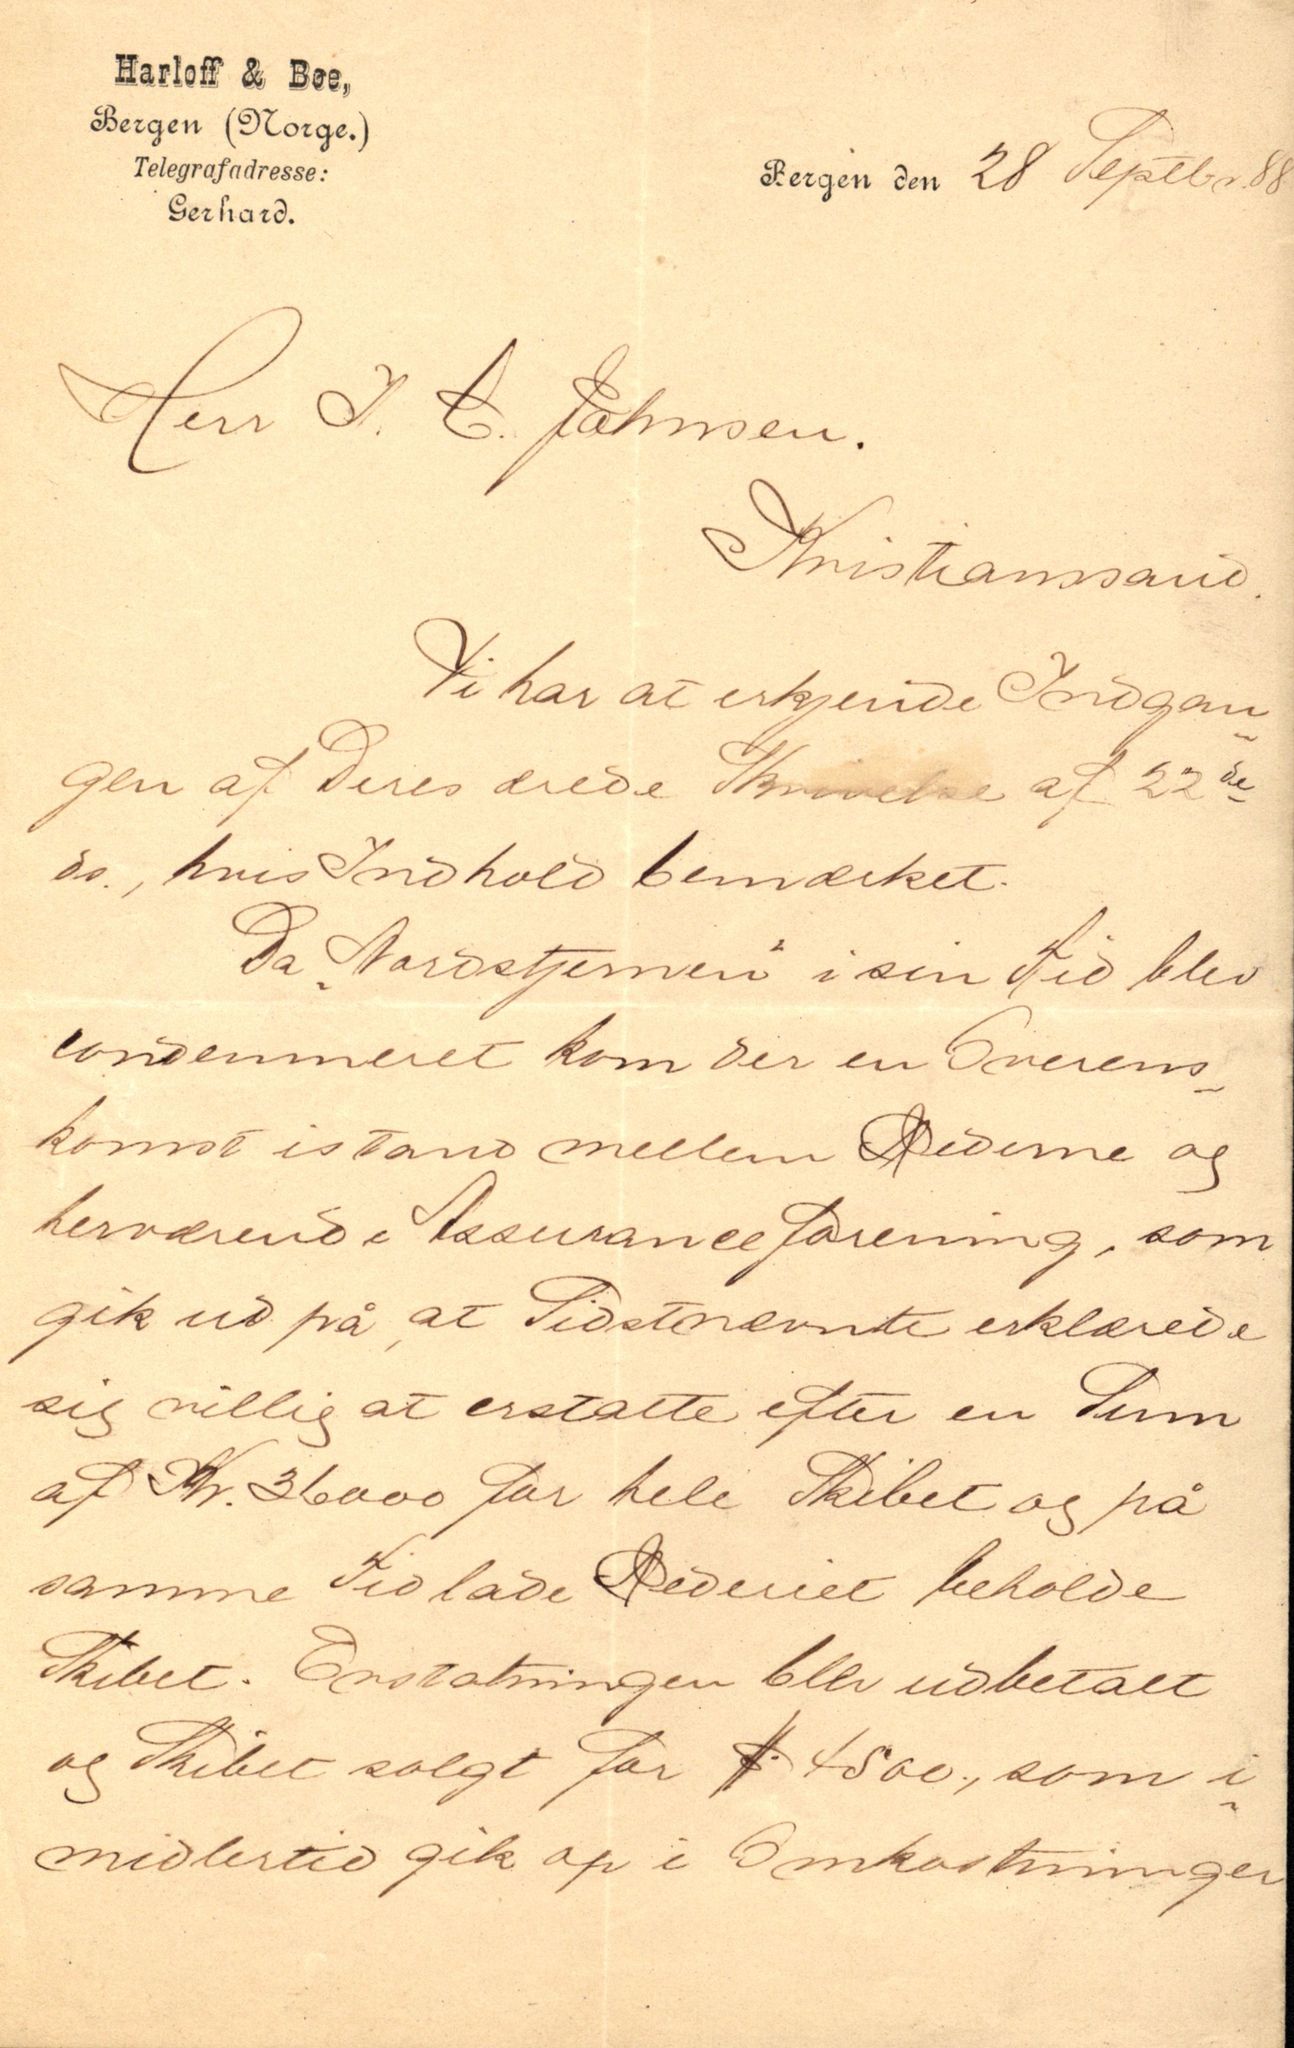 Harloff & Bøe,
Bergen (Norge.)
Telegrafadresse:
Gerhard.
Bergen den 28 Septbr. 88
Herr I. C. Johnsen.
Kristianssand.
Vi har at erkjende Indgan-
gen af Deres ærede Skrivelse af 22de
ds., hvis Indhold bemærket.
Da „Nordstjernen" i sin Tid blev
condemneret kom der en Overens-
komst istand mellem Rederne og
herværende Assuranceforening, som
gik ud på, at Sidstnævnte erklærede
sig villig at erstatte efter en Sum
af Kr. 36000 for hele Skibet og på
samme Tid lade Rederiet beholde
Skibet. Erstatningen blev udbetalt
og Skibet solgt for $ 4500., som i-
midlertid gik op i Omkostninger